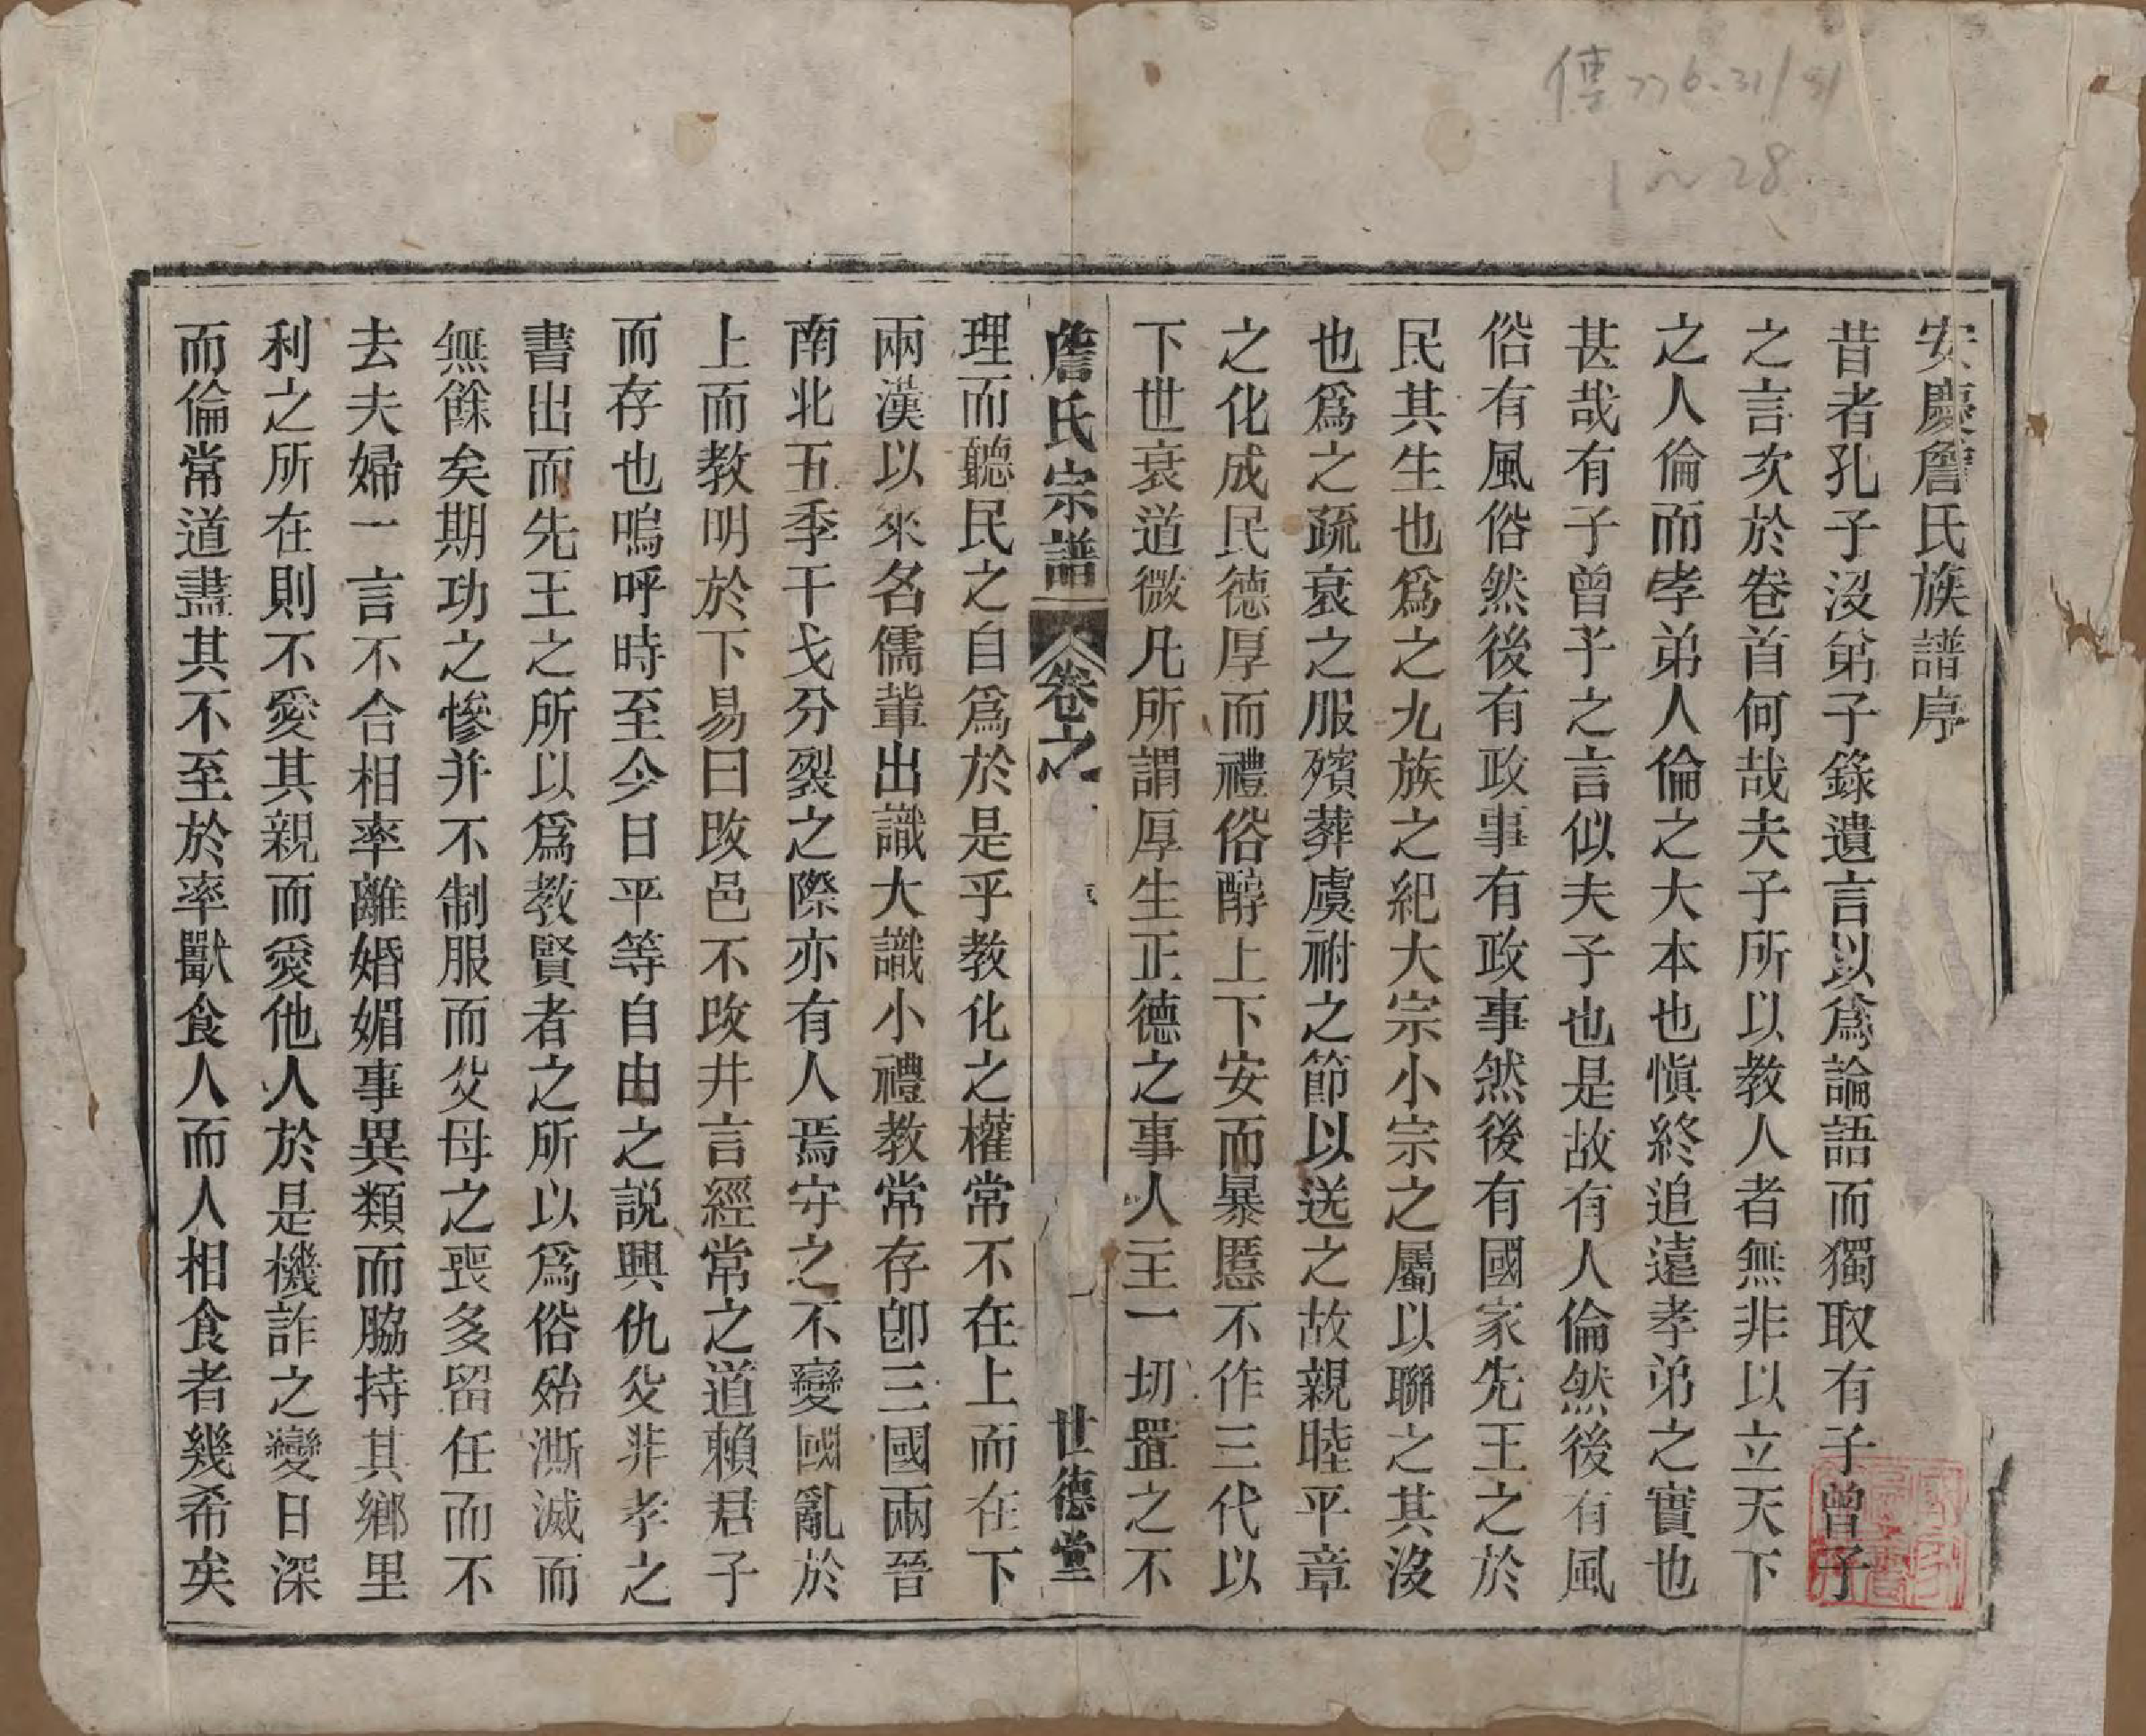 傳 776.31/51
1~28
安慶詹氏族譜序
昔者孔子沒弟子錄遺言以爲論語而獨取有子曾子
之言次於卷首何哉夫子所以教人者無非以立天下
之人倫而孝弟人倫之大本也愼終追遠孝弟之實也
甚哉有子曾子之言似夫子也是故有人倫然後有風
俗有風俗然後有政事有政事然後有國家先王之於
民其生也爲之九族之紀大宗小宗之屬以聯之其沒
也爲之疏衰之服殯葬虞祔之節以送之故親睦平章
之化成民德厚而禮俗醇上下安而暴慝不作三代以
下世衰道微凡所謂厚生正德之事人主一切置之不
詹氏宗譜 卷之 一 世德堂
理而聽民之自爲於是乎教化之權常不在上而在下
兩漢以來名儒輩出識大識小禮教常存卽三國兩晉
南北五季干戈分裂之際亦有人焉守之不變國亂於
上而教明於下易曰改邑不改井言經常之道賴君子
而存也嗚呼時至今日平等自由之説興仇父非孝之
書出而先王之所以爲教賢者之所以爲俗殆澌滅而
無餘矣期功之慘并不制服而父母之喪多留任而不
去夫婦一言不合相率離婚媚事異類而脇持其鄉里
利之所在則不愛其親而愛他人於是機詐之變日深
而倫常道盡其不至於率獸食人而人相食者幾希矣